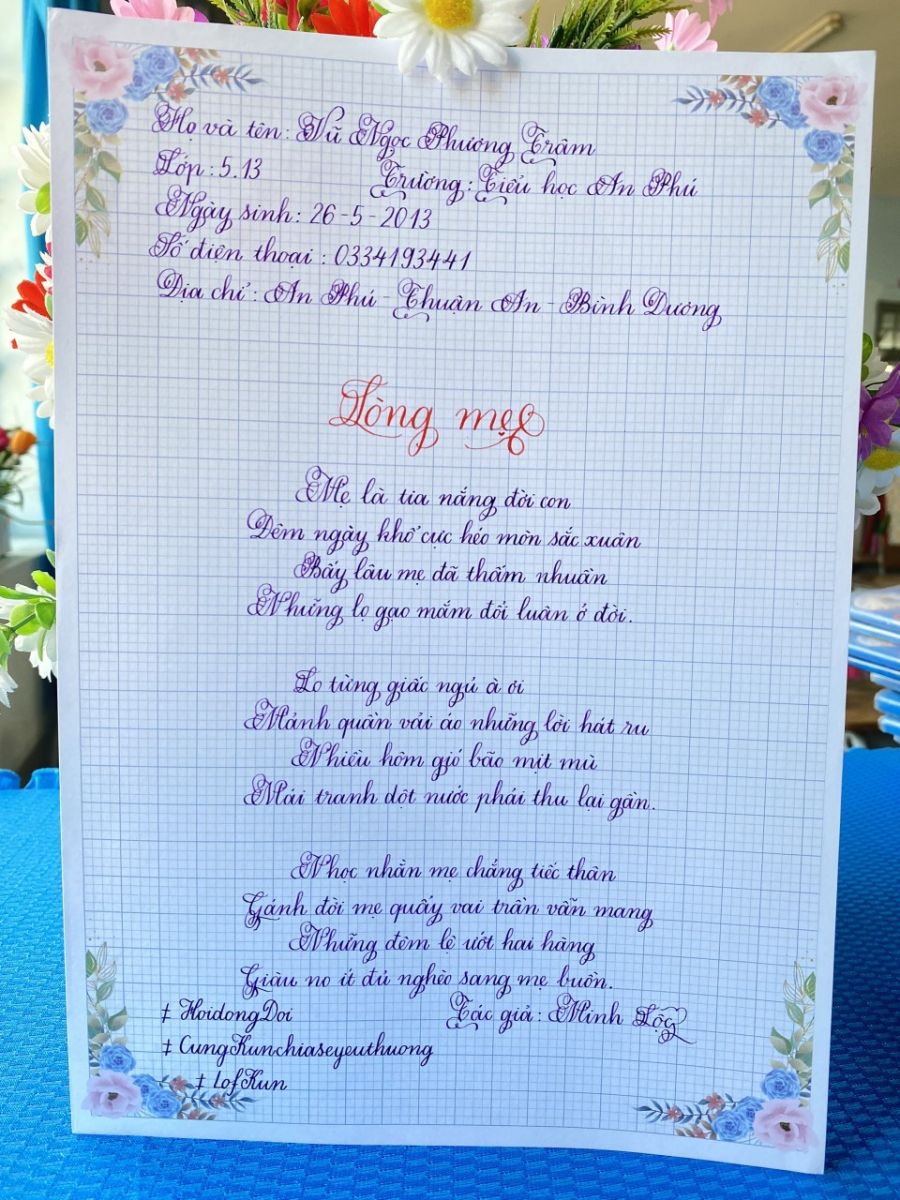 Họ và tên: Vũ Ngọc Phương Trâm
Lớp: 5.13 Trường: Tiểu học An Phú
Ngày sinh: 26-5-2013
Số điên thoại: 0334193441
Địa chỉ: An Phú - Thuận An - Bình Dương
Lòng mẹ
Mẹ là tia nắng đời con
Đêm ngày khổ cực héo mòn sắc xuân
Bấy lâu mẹ đã thấm nhuần
Những lọ gạo mắm đổi luân ở đời.
Lo từng giấc ngủ à ơi
Mảnh quần vải áo những lời hát ru
Nhiều hôm gió bão mịt mù
Mái tranh dột nước phải thu lại gần.
Nhọc nhằn mẹ chẳng tiếc thân
Gánh đời mẹ quẩy vai trần vẫn mang
Những đêm lệ ướt hai hàng
Giàu no ít đủ nghèo sang mẹ buồn.
Tác giả: Minh Lộc
# HoidongDoi
# CungKunchiaseyeuthuong
# LofKun